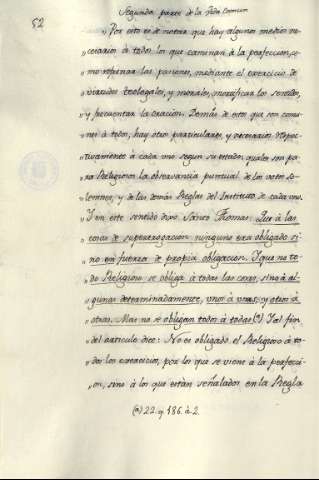 Segunda parte de la Vida Comun
52
"Por esto es de notar que hay algunos medios ne-
"cesarios á todos los que caminan á la perfeccion, co-
"mo refrenar las pasiones, mediante el exercicio de
"virtudes teologales, y morales, mortificar los sentidos,
"y frecuentar la oracion. Demás de estos que son comu-
"nes á todos, hay otros particulares, y necesarios respec-
"tivamente á cada uno segun su estado, quales son pa-
"ra Religiosos la observancia puntual de los votos so-
"lemnes, y de las demás Reglas del Instituto de cada uno.
"Y en este sentido dixo Santo Thomas: Que á las
"cosas de supererogacion ninguno era obligado si-
"no en fuerza de propia obligacion. Y que no to-
"do Religioso se obliga á todas las cosas, sino á al-
"gunas determinadamente, unos á unas, y otros á
"otras. Mas no se obligan todos á todas (a) Y al fin
"del articulo dice: No es obligado el Religioso á to-
"dos los exercicios, por los que se viene á la perfec-
"cion, sino á los que estan señalados en la Regla
(a) 22. q 186. á 2.